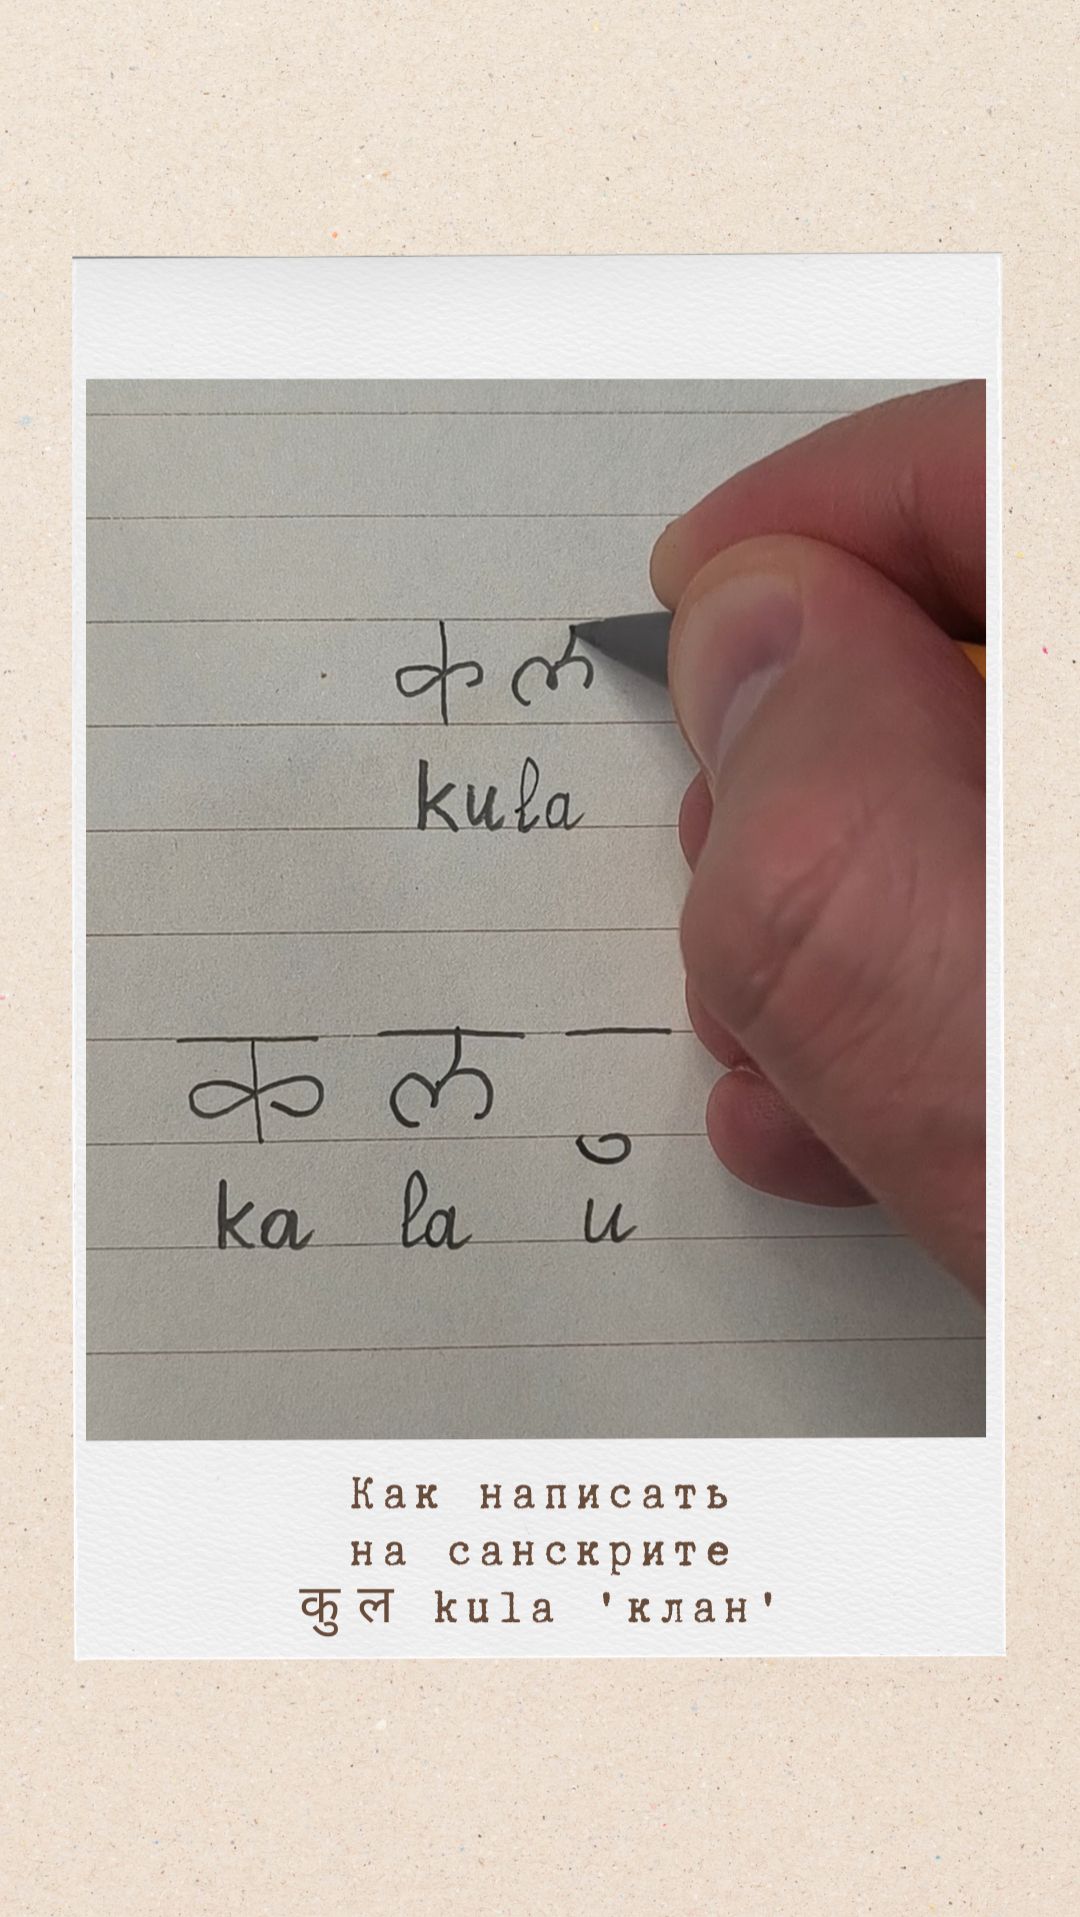 क ल
kula
क ल ु
ka la u
Как написать
на санскрите
कु ल kula 'клан'